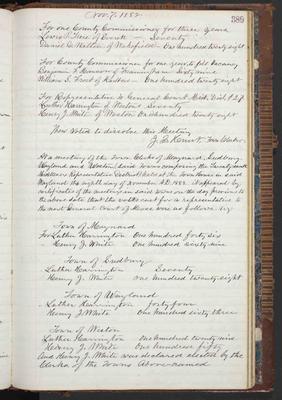 Nov. 7. 1882
389
For one County Commissioner for three years
Seventy
Daniel G. Walton of Wakefield One hundred twenty eight
For County Commissioner for one year, to fill vacancy,
Benjamin F. of Framingham Sixty nine
William S. Frost of One hundred twenty eight
For Representative to General Court Midd. Dist.
Luther Harrington of Weston Seventy
Henry J. White of Weston One hundred twenty eight
Now Voted to dissolve this Meeting
Town Clerk.
At a meeting of the Town Clerks of Maynard, Sudbury,
Wayland and Weston, said towns comprising the
Middlesex Representative District held at the Town house in said
Wayland the eight day of November A.D. 1882. It appeared by
certificates of the meetings in said towns on the day previous to
the above date that the votes cast for a representative to
the next General Court of Mass was as follows. viz
Town of Maynard
For Luther Harrington One hundred forty six
Henry J. White One hundred sixty nine
Town of Sudbury
Luther Harrington Seventy
Henry J. White one hundred twenty eight
Town of Wayland
Luther Harrington forty four
Henry J. White One hundred sixty three
Town of Weston
Luther Harrington One hundred twenty nine
Henry J. White One hundred fifty
And Henry J. White was declared elected by the
Clerks of the Towns above named